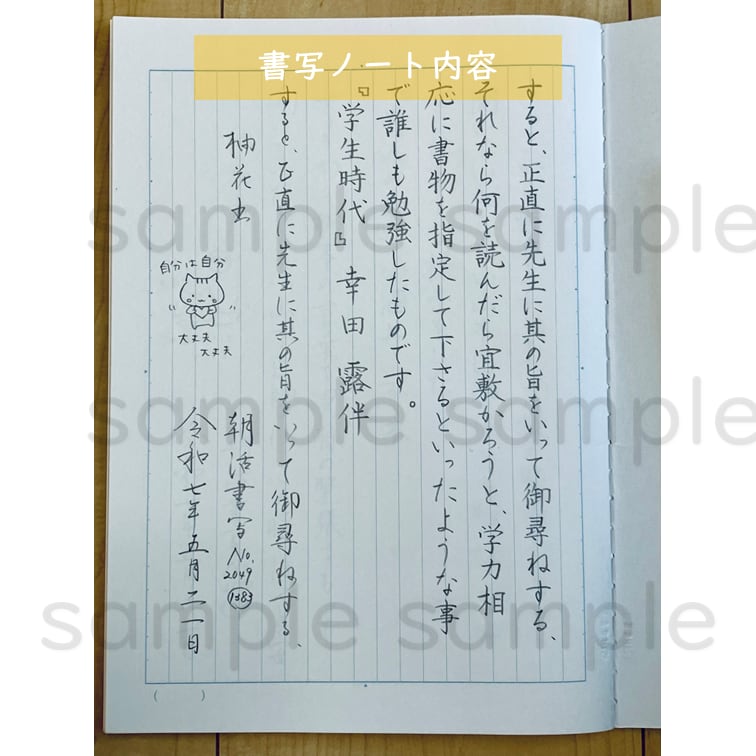 書写ノート内容
すると、正直に先生に其の旨をいって御尋ねする、
それなら何を読んだら宜敷かろうと、学力相
応に書物を指定して下さるといったような事
で誰しも勉強したものです。
『学生時代』 幸田 露伴
すると、正直に先生に其の旨をいって御尋ねする、
柚花
自分は自分
大丈夫
大丈夫
朝活書写 No.
2049
1583
令和七年五月二一日
sample sample
sample sample
sample sample